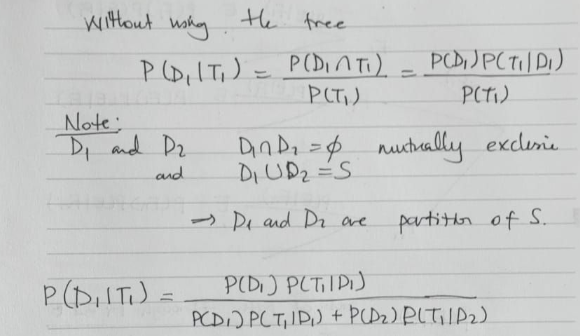 Without using the tree
P(D₁|T₁) = P(D₁∩T₁) / P(T₁) = P(D₁)P(T₁|D₁) / P(T₁)
Note:
D₁ and D₂ D₁∩D₂ = ϕ mutually exclusive
and D₁∪D₂ = S
→ D₁ and D₂ are partition of S.
P(D₁|T₁) = P(D₁) P(T₁|D₁) / P(D₁)P(T₁|D₁) + P(D₂)P(T₁|D₂)